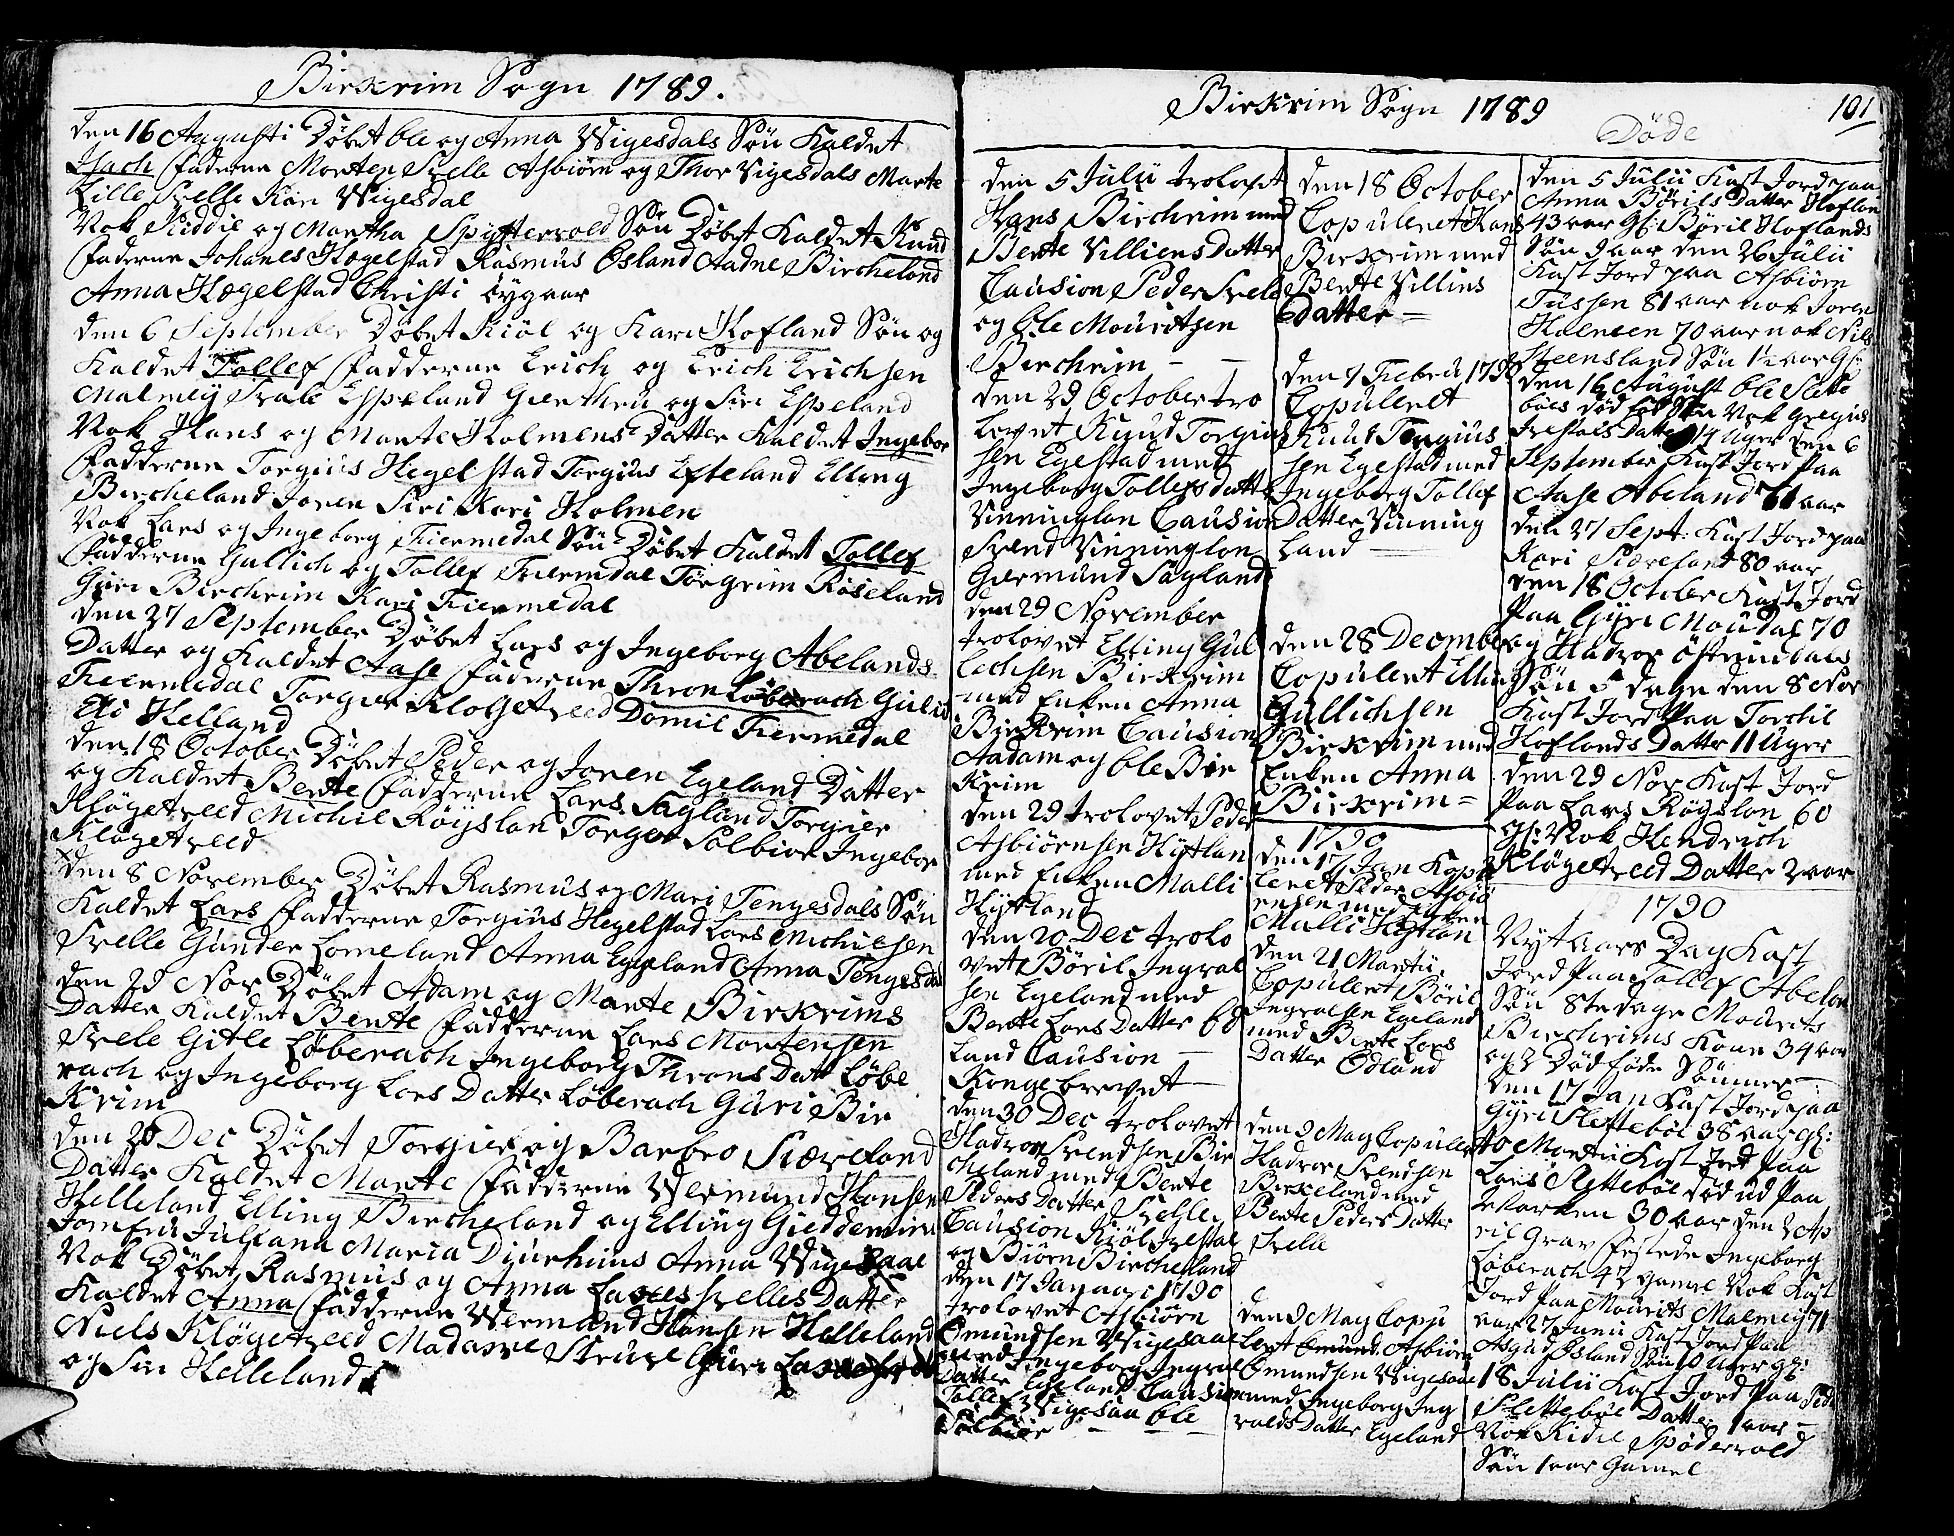 Birkrim Sogn 1789.
den 16 Augusti Döbet Ole og Anna Wigesdals Sön Kaldet
Isach Faderne Morten Svelle Asbiörn og Thor Vigesdals Marte
Lille Svelle Kari Wigesdal
Nok Kiddil og Martha Spyttervold Sön Döbet Kaldet Knud
Faderne Johanes Hegelstad Rasmus Øsland Aadne Bircheland
Anna Hegelstad Christi
den 6 September Döbet Kiöl og Kari Hofland Sön og
Kaldet Tollef Fadderne Erich og Erich Erichsen
Malmey Espeland og Siri Espeland
Nok Hans og Marte Holmens Datter Kaldet Ingebor
Fadderne Torgius Hegelstad Torgius Efteland Elling
Bircheland Joren Siri Kari Holmen
Nok Lars og Ingeborg Fiermedal Sön Döbet Kaldet Tollef
Fadderne Gullich og Tollef Fiermdal Torgrim Röseland
Guri Birchrim Kari Fiermedal
den 27 September Döbet Lars og Ingeborg Abelands
Datter og Kaldet Aase Faderne Thron Löberach Gulic
Fiermedal Torger Klogetved Domil Fiermedal
Eli Helland
den 18 October Döbet Peder og Joren Egeland Datter
og Kaldet Bente Fadderne Lars Sagland Torgier
Klögetved Michil Röyslan Torger Solbior Ingebor
Klögetved
den 8 November Döbet Rasmus og Mari Tengesdals Sön
Kaldet Lars Fadderne Torgius Hegelstad Lars Michilsen
Svelle Gunder Lomeland Anna Egeland Anna Tengesdal
den 29 Nov Döbet Adam og Marte Birkrims
Datter Kaldet Bente Fadderne Lars Mortensen
Svele Gitle Löberach Ingeborg Throns Datt Löbe
rach og Ingeborg Lars Datter Löberach Guri Bir
Krim
den 26 Dec Döbet Torgier og Barbro Skiæveland
Datter Kaldet Marte Fadderne Wermund Hansen
Helleland Elling Bircheland og Elling Gieddemire
Jomfru Juliana Maria Djurhuus Anna Wigesaae
Nok Döbet Rasmus og Anna Svelles Datter
Kaldet Anna Fadderne Wermund Hansen Helleland
Niels Klögetved Madame Guri
og Siri Helleland
Birkrim Sogn 1789
101
Döde
den 5 Julii trolovet
Hans Birchrim med
Bente Villiens Datter
Causion Peder Svele
og Ole Mouritsen
Birchrim
den 29 October tro
lovet Knud Torgius
sen Egestad med
Ingeborg Tollefsdatter
Vinninglan Causion
Svend Vinninglon
Giermund Sagland
den 29 November
trolovet Elling Gul
lechsen Birkrim
med Enken Anna
Birkrim Causion
Aadam og Ole Bir
Krim
den 29 trolovet Peder
Asbiörnsen Hÿtlan
med Enken Malli
Hÿtland
den 20 Dec trolo
vet Böril Ingval
sen Egeland med
Bente Lars Datter Ød
land Causion
Kongebrevet
den 30 Dec trolovet
Hadvor Svendsen Bir
cheland med Bente
Peders Datter Svelle
Causion Kiöl Ivestad
og Biörn Bircheland
den 17 Januari 1790
trolovet Asbiörn
Omundsen Wigesaae
med Ingeborg Ingval
Datter Egeland Causion
Tollef Wigesaa Ole
Solbior
den 18 October
Copuleret Hans
Birkrim med
Bente Villins
Datter
den 7 Febru 1790
Copuleret
Knut Torgius
sen Egestad med
Ingeborg Tollef
Datter Vinning
Land
den 28 December
Copulert Elling
Gullichsen
Birkrim med
Enken Anna
Birkrim
1790
den 17 Jan Kopu
leret Peder Asbiö
rnsen med Enken
Malli Hÿtlan
den 21 Martii
Copulert Böril
Ingvalsen Egeland
med Bente Lars
Datter Ödland
den 9 May Copuler
Hadvor Svendsen
Birkeland med
Bente Peders Datter
Svele
den 9 May Copu
lert Asbiörn
Omundsen Wigesaae
med Ingeborg Ing
valds Datter Egeland
den 5 Julii Kast Jord paa
Anna Börils Datter Hoflon
43 aar Böril Hoflands
Sön 9 aar den 26 Julii
Kast Jord paa Asbiörn
Tussen 81 aar nok Joren
Holmen 70 aar nok Nils
Steensland Sön
den 16 August Ole Slette
böes död föd Sön Nok Gregius
Ivestads Datter 14 Uger den 6
September Kast Jord Paa
Aase Abeland 71 aar
den 27 Sept. Kast Jord paa
Kari 80 aar
den 18 October Kast Jord
Paa Gyri Moudal 70
og Hadvor Östrumdals
Sön 5 dage den 8 Nov
Kast Jord Paa Torchil
Hoflands Datter 11 Uger
den 29 Nov Kast Jord
Paa Lars Röyslon 60
Nok Hendrich
Klögetved Datter 2 aar
1790
Nyt aars Dag Kast
Jord Paa Tollef Abelon
Sön 8te dage Mourets
Birchrims Kone 34 aar
og 2 Död föde Sönner
den 17 Jan Kast Jord paa
Gyri Sletteböe 38 aar
10 Martii Kast Jord Paa
Lars Sletteböe död ud Paa
Marken 30 aar den 2 Ap
ril Grav festede Ingeborg
Löberach 47 gamel Nok Kast
Jord Paa Mourits Malmey 71
aar 27 Junii Kast Jord Paa
Asgud Øsland Sön 10 uger
18 Julii Kast Jord Paa Peder
Sletteböe Datter 1 aar
Nok Kidil Spödervold
Sön 1 aar Gamel